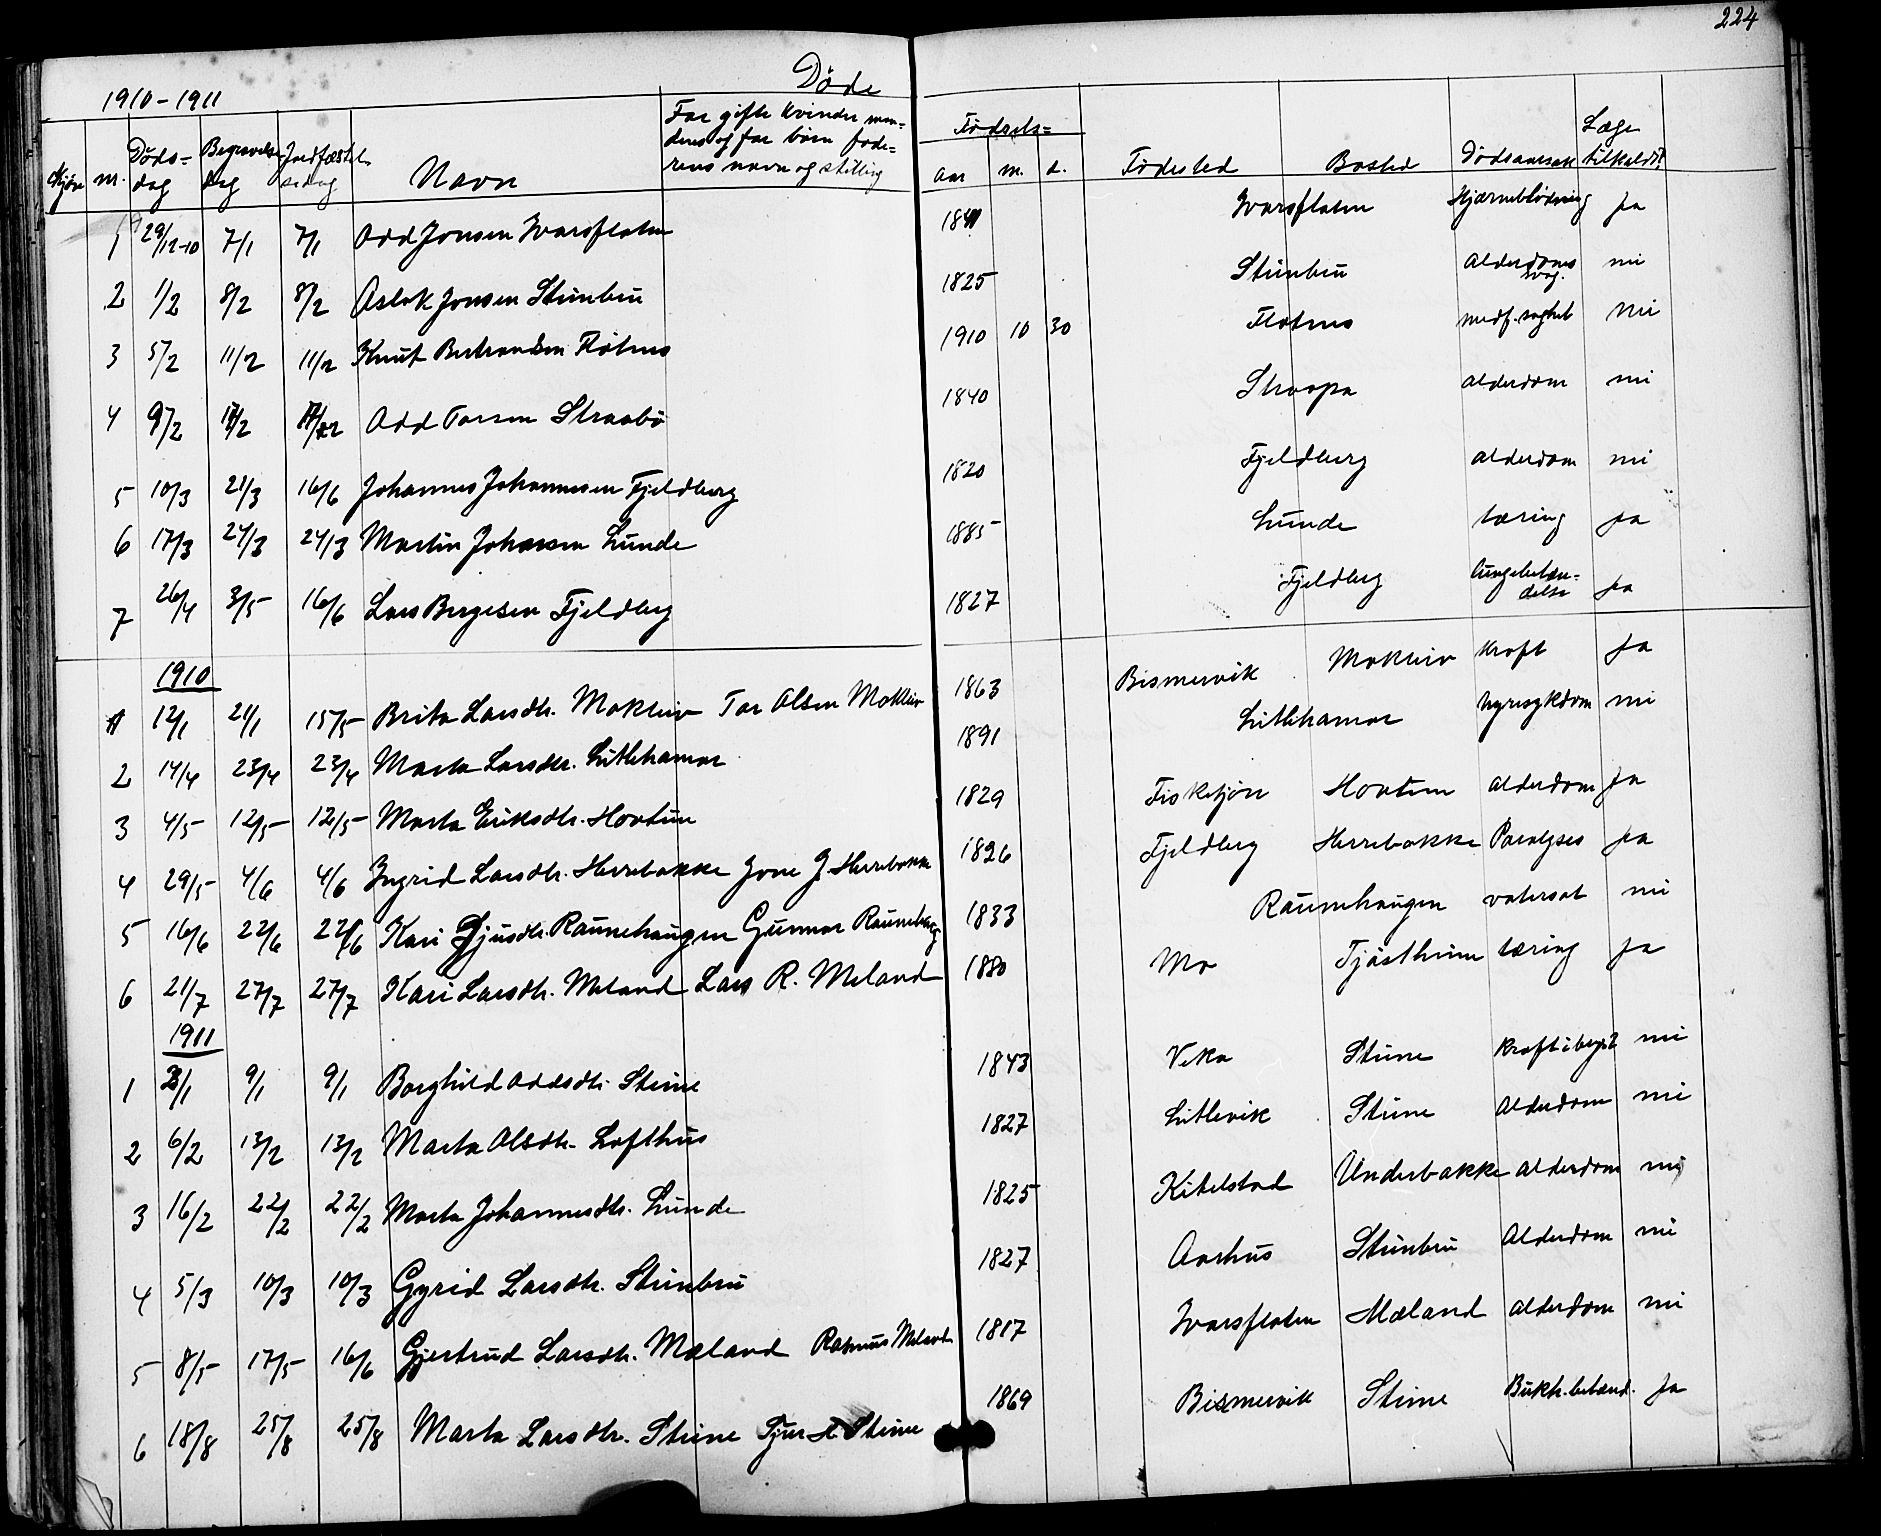 224
Døde
1910-1911
Kjøn nr. Døds= dag Begravelses dag Jordfæstel sesdag Navn For gifte kvinder man= dens og for børn fade= rens navn og stilling Fødsels= Aar m. d. Fødested Bosted Dødsaarsak Læge tilkaldt?
1 29/12-10 7/1 7/1 Odd Jonsen Ivarsflaten 1841 Ivarsflaten Hjærneblödning ja
2 1/2 8/2 8/2 Aslak Jonsen Steinbru 1825 Steinbru Alderdoms svag. nei
3 5/2 11/2 11/2 Knut Flötnes 1910 10 30 Flotnes medf. svaghet nei
4 9/2 17/2 Odd Torsen Straabö 1840 Straapa alderdom nei
5 10/3 21/3 16/6 Johannes Johannesen Fjeldberg 1820 Fjeldberg alderdom nei
6 17/3 24/3 24/3 Martin Johansen Lunde 1885 Lunde tæring ja
7 26/4 3/5 16/6 Lars Bergesen Fjeldberg 1827 Fjeldberg Lungebetæn= delse ja
1910
1 12/1 21/1 15/5 Brita Larsdtr. Mokleiv Tor Olsen Mokleiv 1863 Bismervik Mokleiv kræft ja
2 14/4 23/4 23/4 Marta Larsdtr. Litlehamar 1891 Litlehamar Nyresykdom nei
3 4/5 12/5 12/5 Marta Eriksdtr. Hovtun 1829 Fisketjön Hovtun alderdom ja
4 29/5 4/6 4/6 Ingrid Larsdtr. Herrebakke Jone J. Herrebakke 1826 Fjeldberg Herrebakke Paralyses ja
5 16/6 22/6 22/6 Kari Gjusdtr. Raunehaugen Gunnar Raunehaug 1833 Raunehaugen vatersot nei
6 21/7 27/7 27/7 Kari Larsdtr. Meland Lars R. Meland 1880 Mo Tjöstheim tæring ja
1911
1 3/1 9/1 9/1 Borghild Oddsdtr. Steine 1843 Veka Steine kræft i bryst nei
2 6/2 13/2 13/2 Marta Olsdtr. Lofthus 1827 Litlevik Steine Alderdom nei
3 16/2 22/2 22/2 Marta Johannesdtr. Lunde 1825 Kitelstad Underbakke alderdom nei
4 5/3 10/3 10/3 Gyrid Larsdtr. Steinbru 1827 Aarhus Steinbru Alderdom nei
5 8/5 17/5 16/6 Gjertrud Larsdtr. Mæland Rasmus Meland 1817 Ivarsflaten Mæland alderdom nei
6 18/8 25/8 25/8 Marta Larsdtr. Steine Steine 1869 Bismervik Steine Bukh. betænd. ja